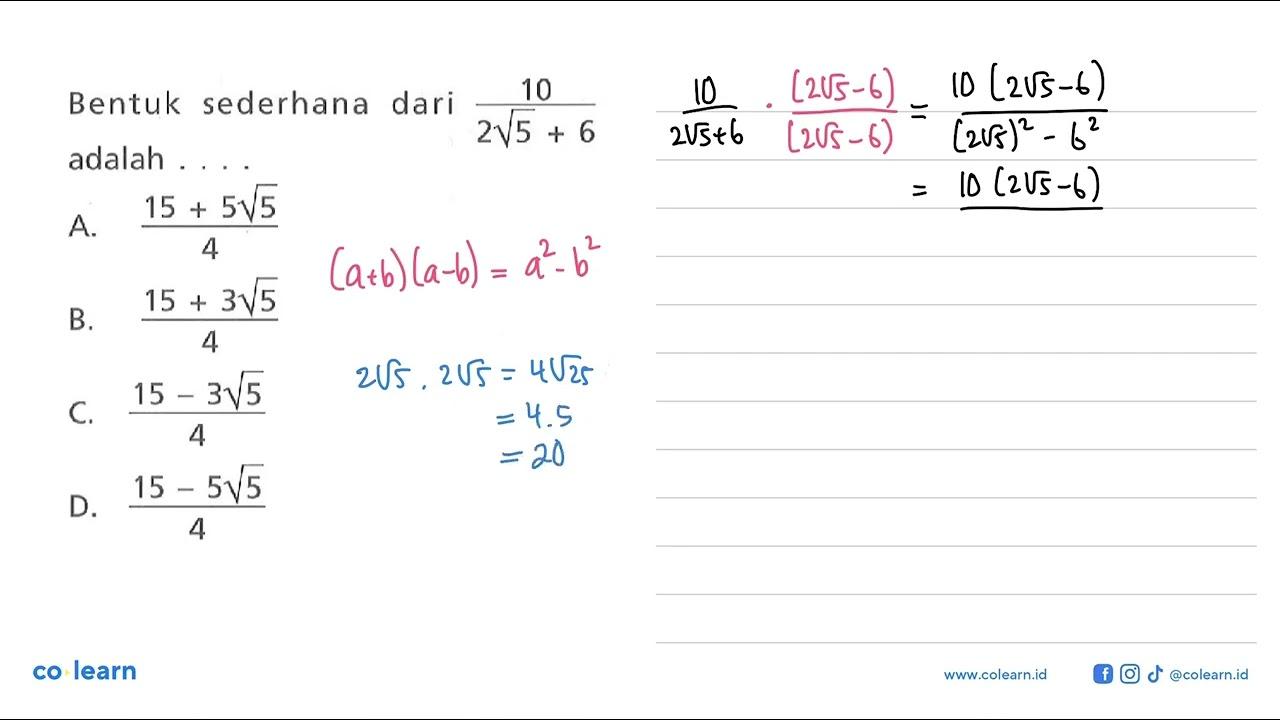 Bentuk sederhana dari 10/(2√5 + 6)
adalah . . . .
A. (15 + 5√5)/4
B. (15 + 3√5)/4
C. (15 − 3√5)/4
D. (15 − 5√5)/4
(a+b)(a-b) = a² - b²
2√5 . 2√5 = 4√25
= 4.5
= 20
10/(2√5+6) . (2√5-6)/(2√5-6) = 10(2√5-6)/((2√5)² - 6²)
= 10(2√5-6)
co learn
www.colearn.id @colearn.id